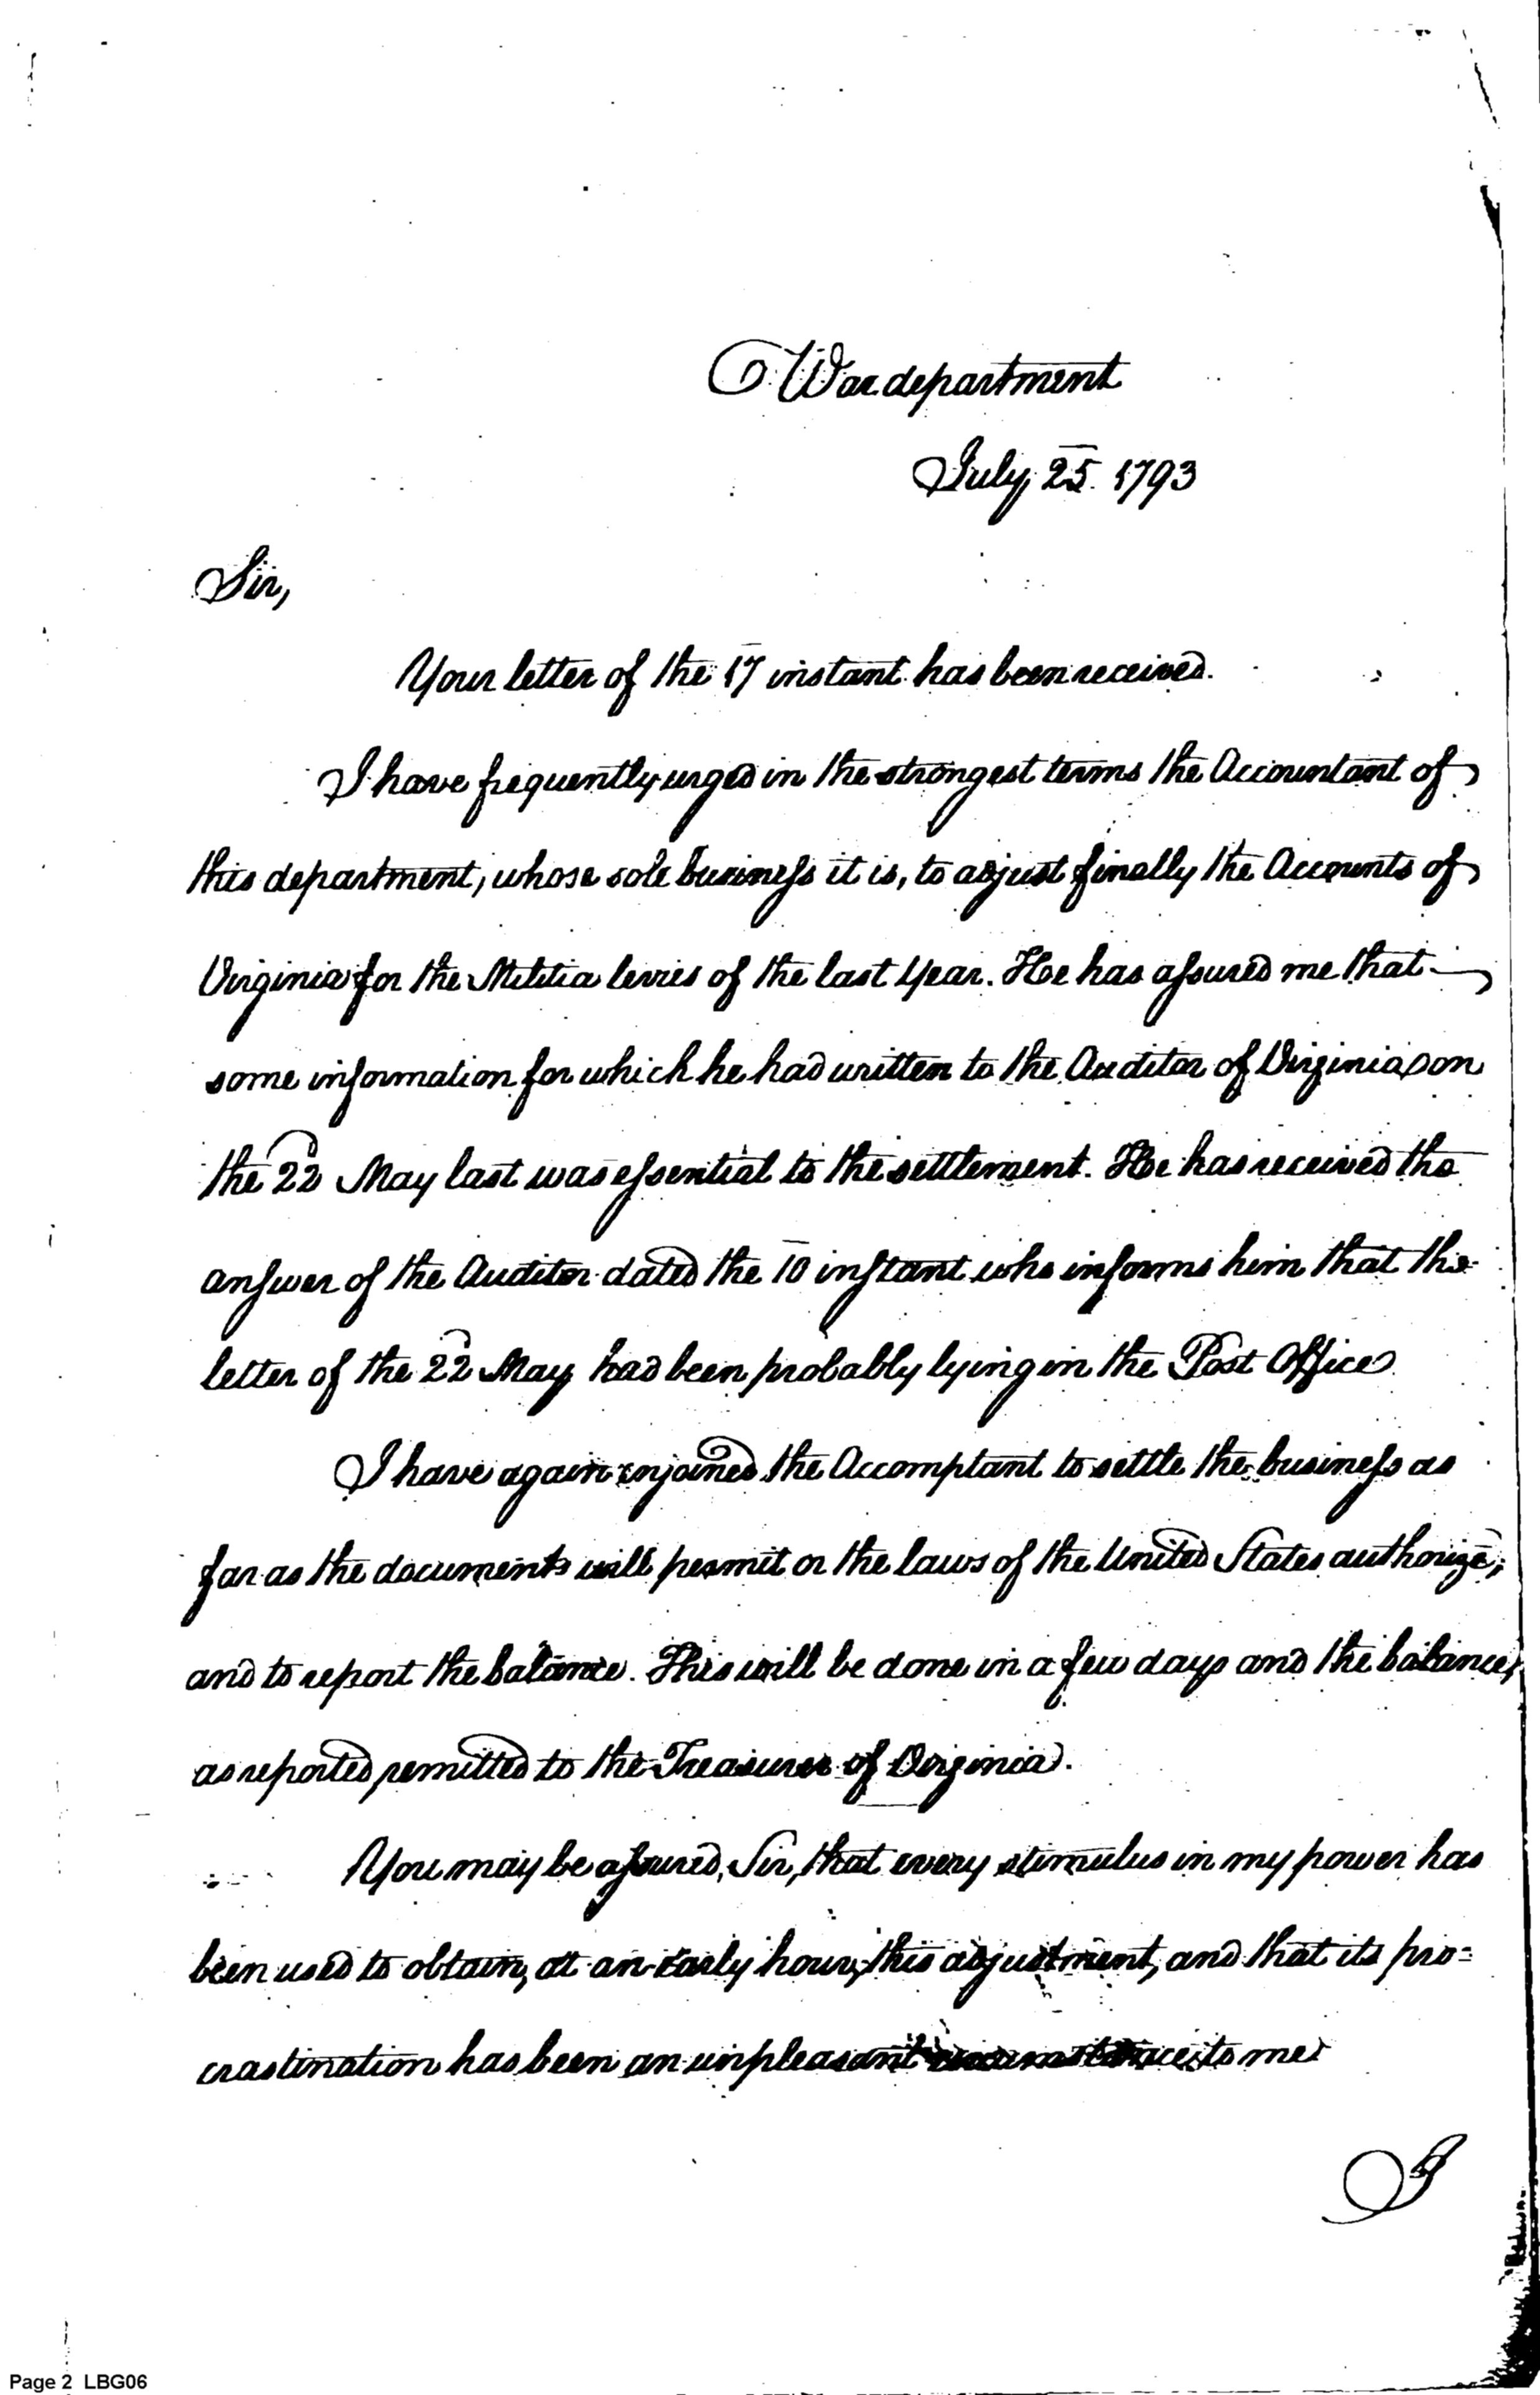 War department
July 25. 1793
Sir,
Your letter of the 17 instant has been received.
I have frequently urged in the strongest terms the Accountant of
this department, whose sole business it is, to adjust finally the Accounts of
Virginia for the Militia levies of the last Year. He has assured me that
some information for which he had written to the Auditor of Virginia on
the 22 May last was essential to the settlement. He has received the
answer of the Auditor dated the 10 instant who informs him that the
letter of the 22 May had been probably lying in the Post Office
I have again enjoined the Accomptant to settle the business as
far as the documents will permit or the laws of the United States authorize,
and to report the balance. This will be done in a few days and the balance,
as reported remitted to the Treasurer of Virginia.
You may be assured, Sir, that every stimulus in my power has
been used to obtain, at an early hour, this adjustment, and that its pro=
crastination has been an unpleasant circumstance to me
I
Page 2 LBG06